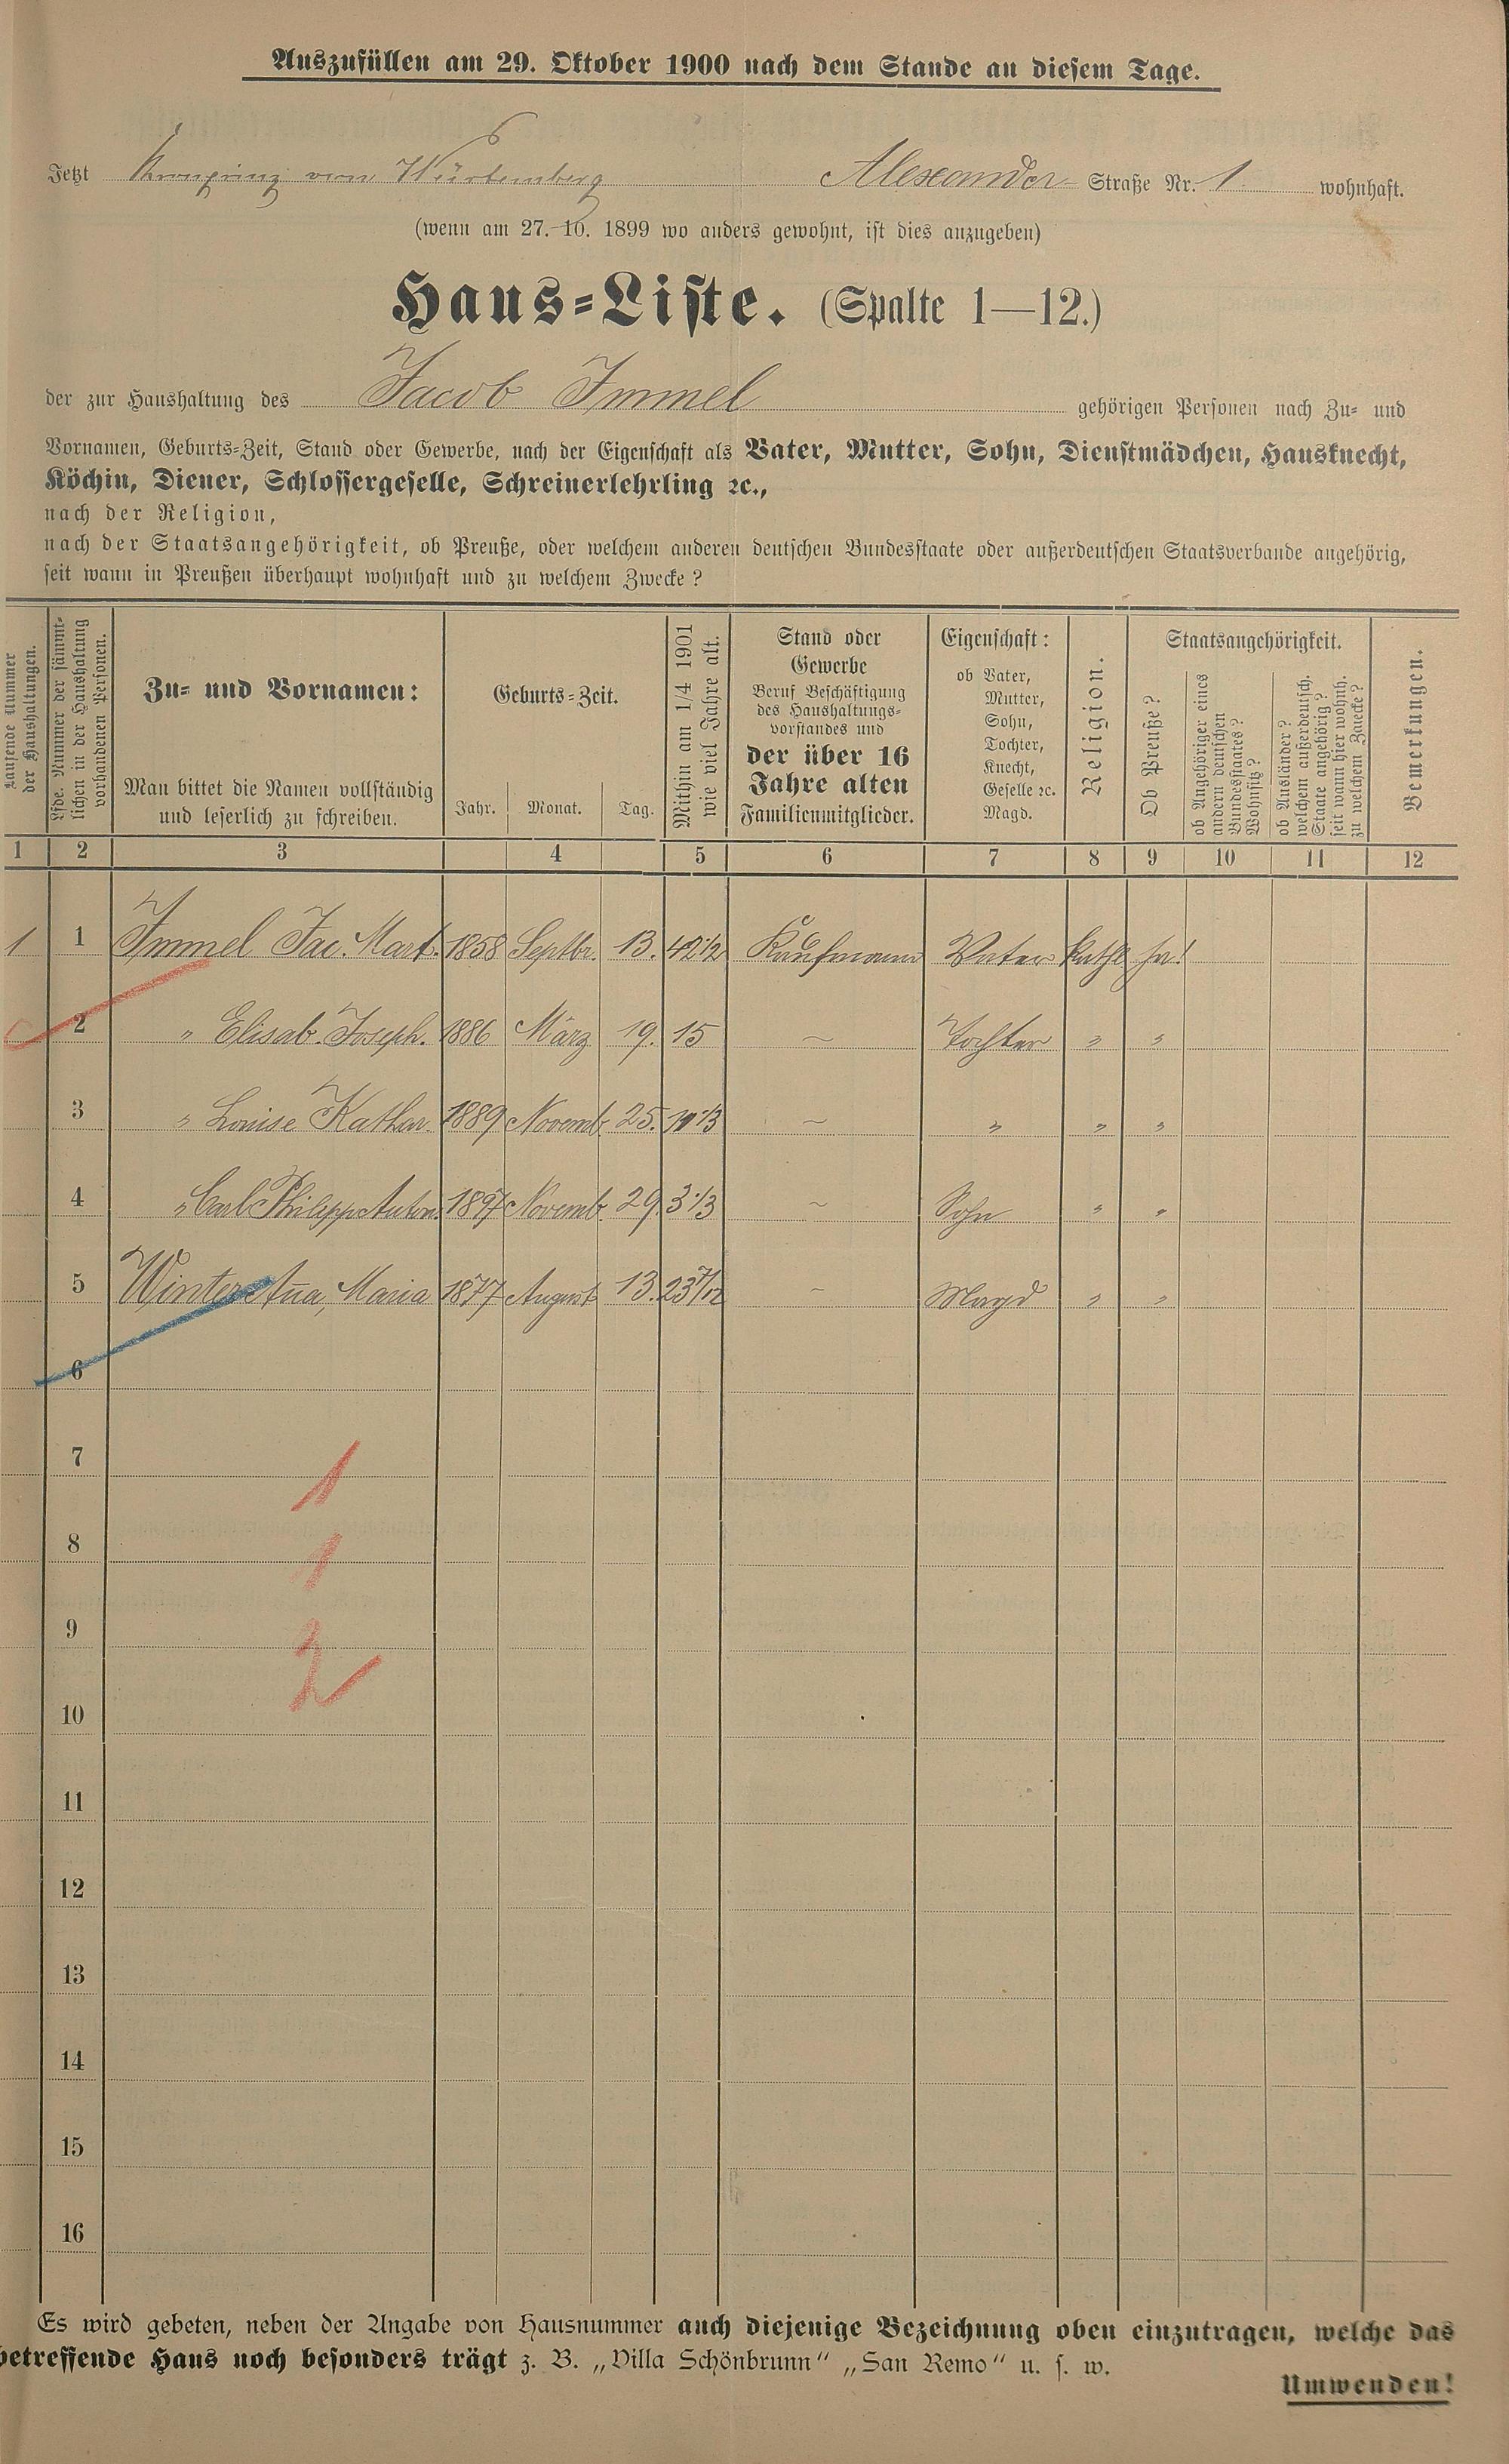 Auszufüllen am 29. Oktober 1900 nach dem Stande an diesem Tage.
Jetzt Kronprinz von Würtemberg Alexander- Straße Nr. 1. wohnhaft.
(wenn am 27. 10. 1899 wo anders gewohnt, ist dies anzugeben)
Haus=Liste. (Spalte 1—12.)
der zur Haushaltung des Jacob Immel gehörigen Personen nach Zu= und
Vornamen, Geburts=Zeit, Stand oder Gewerbe, nach der Eigenschaft als Vater, Mutter, Sohn, Dienstmädchen, Hausknecht,
Köchin, Diener, Schlossergeselle, Schreinerlehrling ꝛc.,
nach der Religion,
nach der Staatsangehörigkeit, ob Preuße, oder welchem anderen deutschen Bundesstaate oder außerdeutschen Staatsverbande angehörig,
seit wann in Preußen überhaupt wohnhaft und zu welchem Zwecke?
Laufende Nummer
der Haushaltungen.
Lfde. Nummer der sämmt-
lichen in der Haushaltung
vorhandenen Personen.
Zu= und Vornamen:
Man bittet die Namen vollständig
und leserlich zu schreiben.
Geburts=Zeit.
Jahr. Monat. Tag.
Mithin am 1/4 1901
wie viel Jahre alt.
Stand oder
Gewerbe
Beruf Beschäftigung
des Haushaltungs=
vorstandes und
der über 16
Jahre alten
Familienmitglieder.
Eigenschaft:
ob Vater,
Mutter,
Sohn,
Tochter,
Knecht,
Geselle ꝛc.
Magd.
Religion.
Staatsangehörigkeit.
Ob Preuße?
ob Angehöriger eines
andern deutschen
Bundesstaates?
Wohnsitz?
ob Ausländer?
welchem außerdeutsch.
Staate angehörig?
seit wann hier wohnh.
zu welchem Zwecke?
Bemerkungen.
1 2 3 4 5 6 7 8 9 10 11 12
1 1 Immel Jac. Mart. 1858 Septbr. 13. 42 1/2 Kaufmann Vater kath. ja!
2 " Elisab. Joseph. 1886 März 19. 15 ~ Tochter " "
3 " Louise Kathar. 1889 Novemb. 25. 11 1/3 ~ " " "
4 " Carl Philipp Anton. 1897 Novemb. 29. 3 1/3 ~ Sohn " "
5 Winter Aña, Maria 1877 August 13. 23 7/12 ~ Magd " "
6
7
1
8
1
9
2
10
11
12
13
14
15
16
Es wird gebeten, neben der Angabe von Hausnummer auch diejenige Bezeichnung oben einzutragen, welche das
betreffende Haus noch besonders trägt z. B. „Villa Schönbrunn“ „San Remo“ u. s. w.
Umwenden!